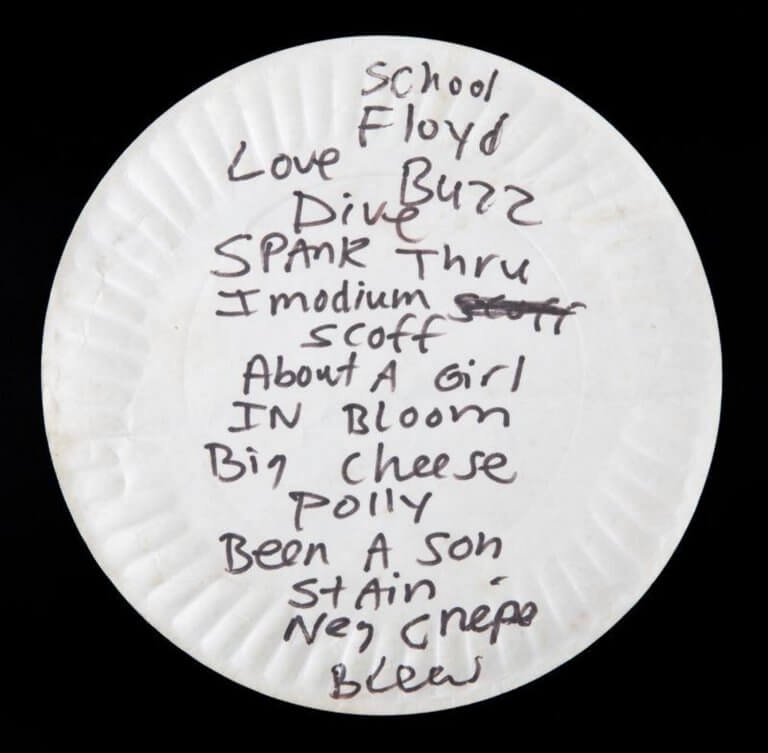 School
Floyd
Love Buzz
Dive
SPANK Thru
Imodium
Scoff
About A Girl
IN Bloom
Big Cheese
Polly
Been A Son
Stain
Neg Crepe
Blew